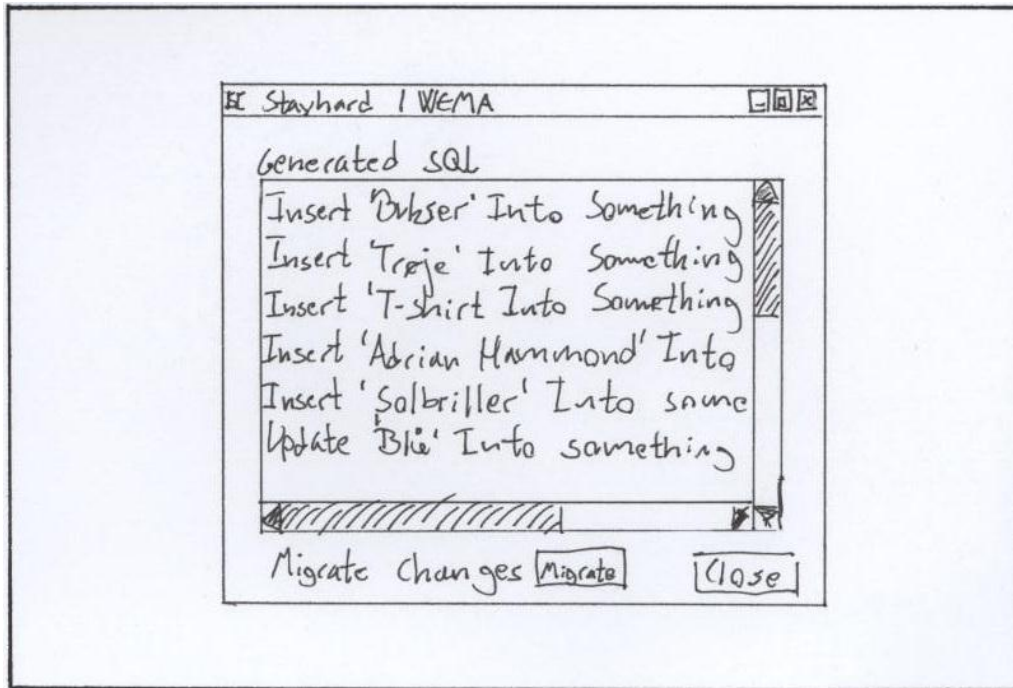 Stayhard | WEMA
Generated SQL
Insert 'Bukser' Into Something
Insert 'Trøje' Into Something
Insert 'T-shirt Into Something
Insert 'Adrian Hammond' Into
Insert 'Solbriller' Into some
Update 'Blå' Into something
Migrate Changes Migrate Close